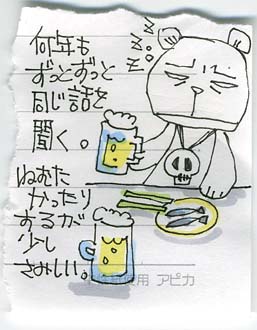 何年も
ずっとずっと
同じ話を
聞く。
ねむた
かったり
するが
少し
さみしい。
zzz
用 アピカ